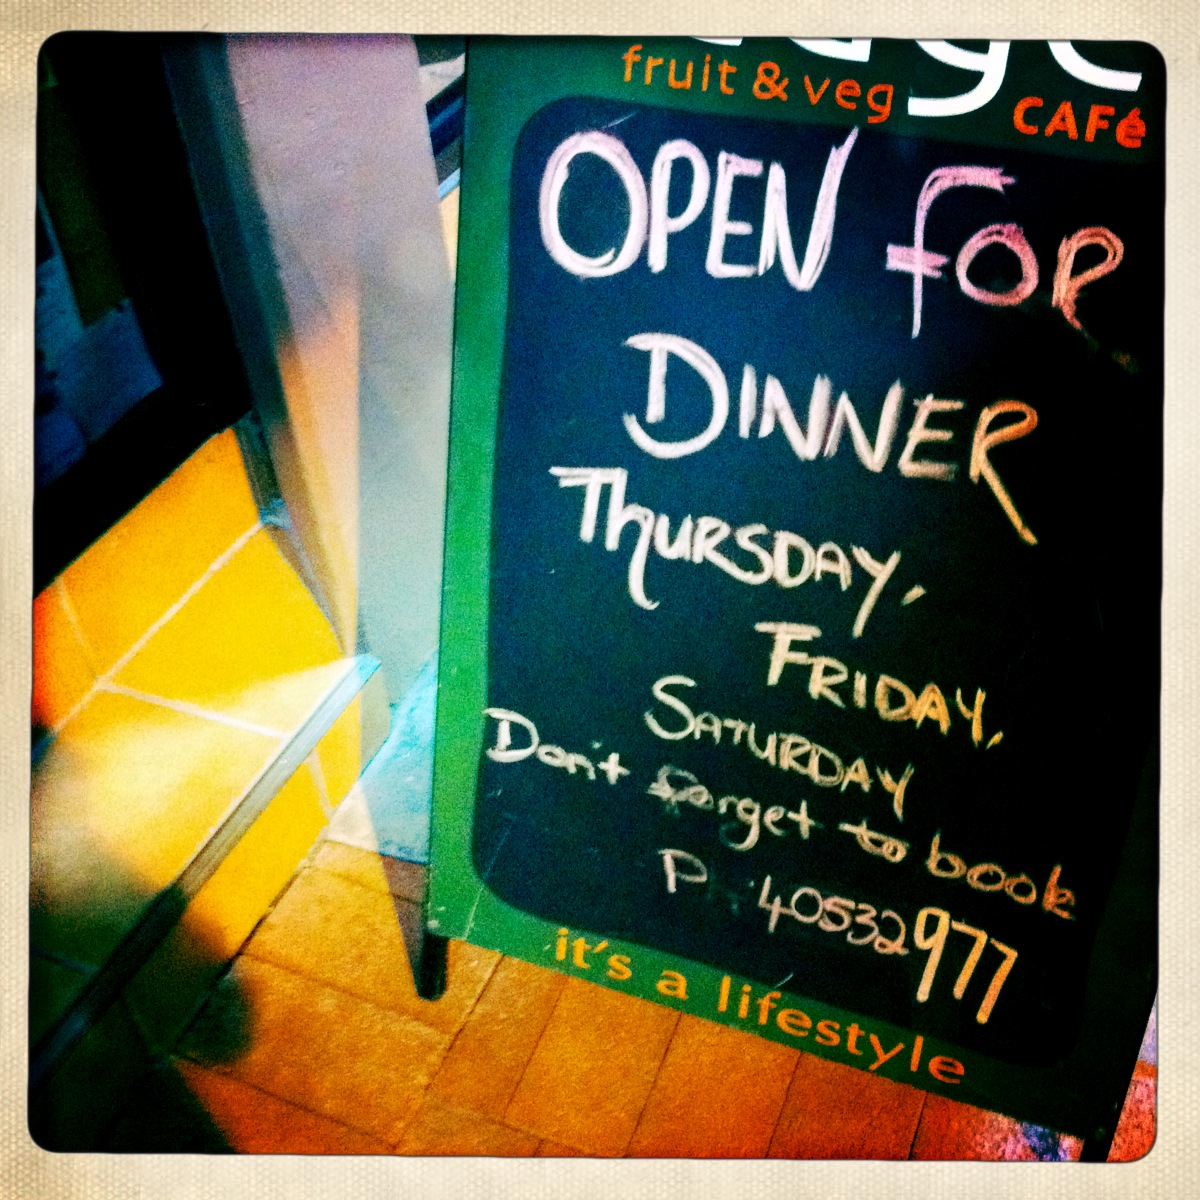 fruit & veg
CAFé
OPEN FOR
DINNER
THURSDAY,
FRIDAY,
SATURDAY
Don't forget to book
P: 40532977
it's a lifestyle